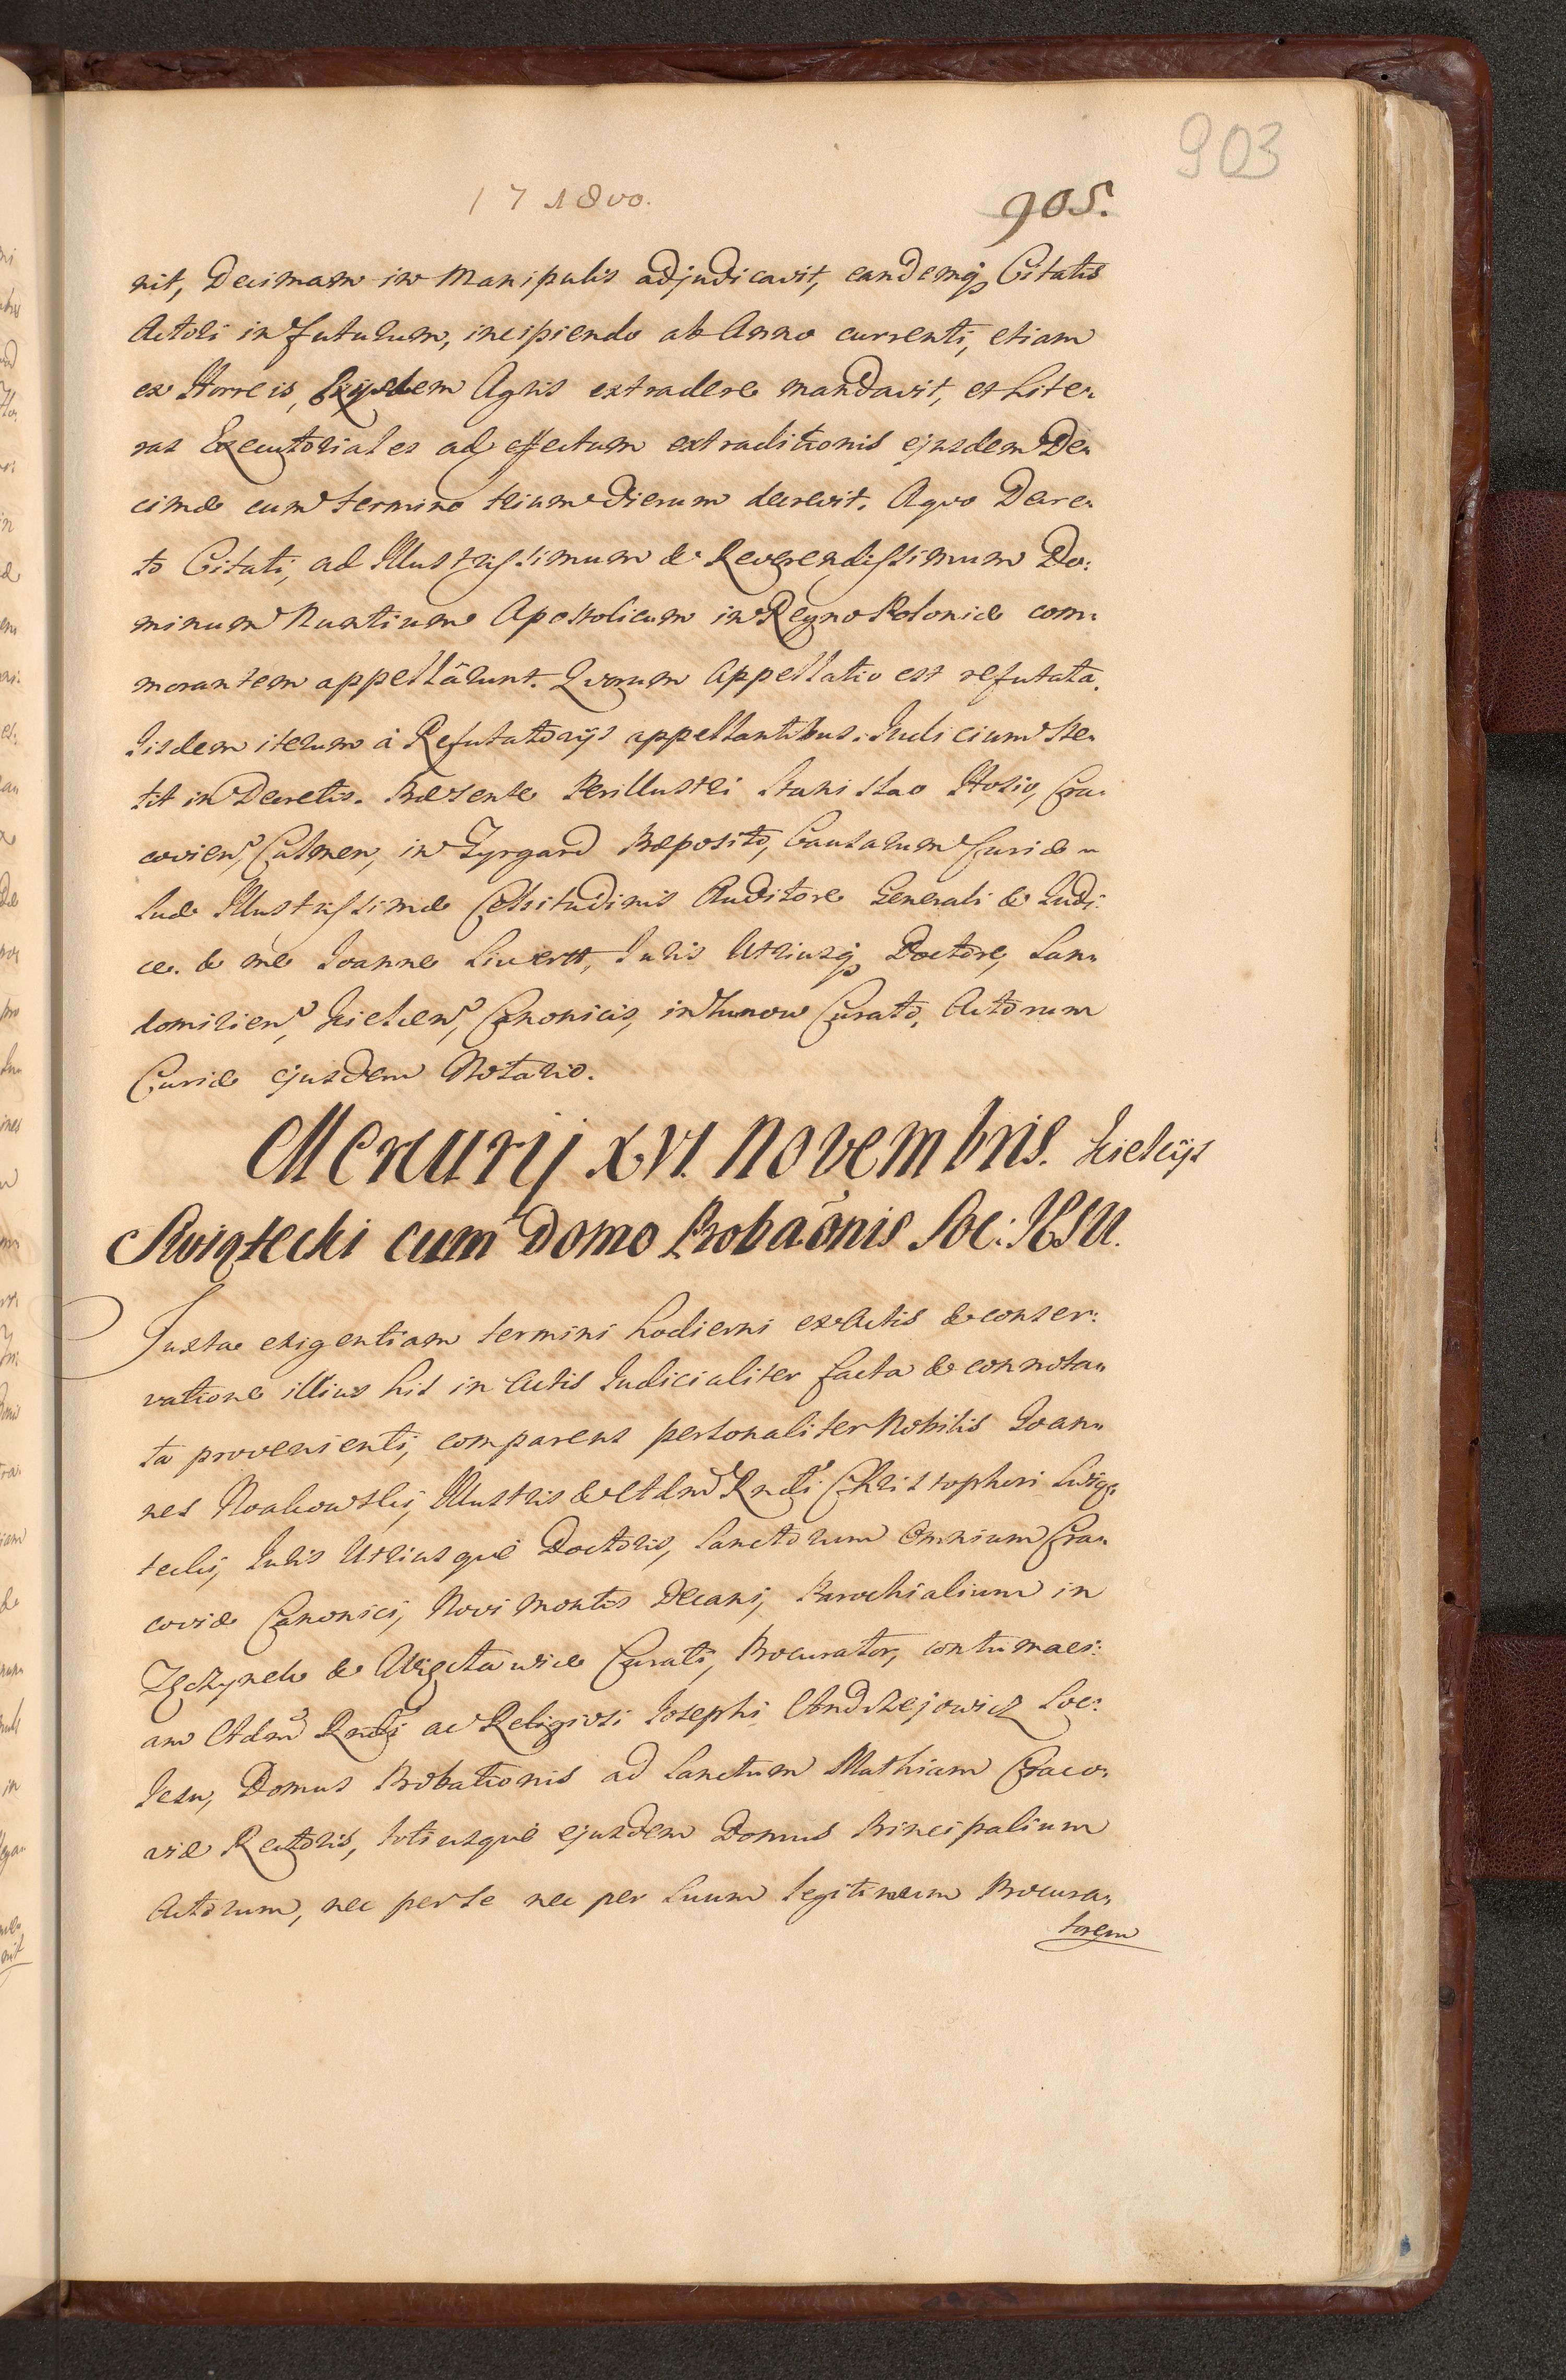 903
1 7 1800.
905.
nit, Decimam in Manipulis adjudicavit, eandemq́ Citatis
Actori in futurum, incipiendo ab Anno currenti, etiam
ex Horreis, Agris extradere mandavit, et Lite„
ras Executoriales ad effectum extraditionis ejusdem De„
cimæ cum termino trium dierum decrevit. A quo Decre„
to Citati, ad Illustrissimum & Reverendissimum Do:
minum Nuntium Apostolicum in Regno Poloniæ com„
morantem appellârunt. Quorum Appellatio est refutata.
Iisdem iterum à Refutatorijs appellantibus. Judicium ste„
tit in Decretis. Præsente Perillustri Stanislao Hosio, Cra„
covien, Culmen, in Zyrgard Præposito, Causarum Curiæ „
suæ Illustrissimæ Celsitudinis Auditore Generali & Judi:
ce. & me Joanne Liwertt, Juris Utriusq́ Doctore, San„
domirien, Kielcen, Canonicis, in Curato, Actorum
Curiæ ejusdem Notario.
Mercurij XVI. Novembris. Kielcijs
Swiątecki cum Domo Probaõnis Soc: JESU.
Juxta exigentiam termini hodierni ex Actis & conser:
vatione illius his in Actis Judicialiter facta & connota„
ta provenienti, comparens personaliter Nobilis Joan„
nes Noakowskij, Illustris & Adm̃ Rndi Christophori Swią„
tecki, Juris Utriusque Doctoris, Sanctorum Omnium Cra„
coviæ Canonici, Novi Montis Decani, Parochialium in
& Curati, Procurator, contumaci:
am Adm̃ Rndi ac Religiosi Josephi Andrzejowicz Soc:
Jesu, Domus Probationis ad Sanctum Mathiam Craco„
viæ Rectoris, totiusque ejusdem Domus Principalium
Actorum, nec per se nec per suum legitimum Procura„
torem